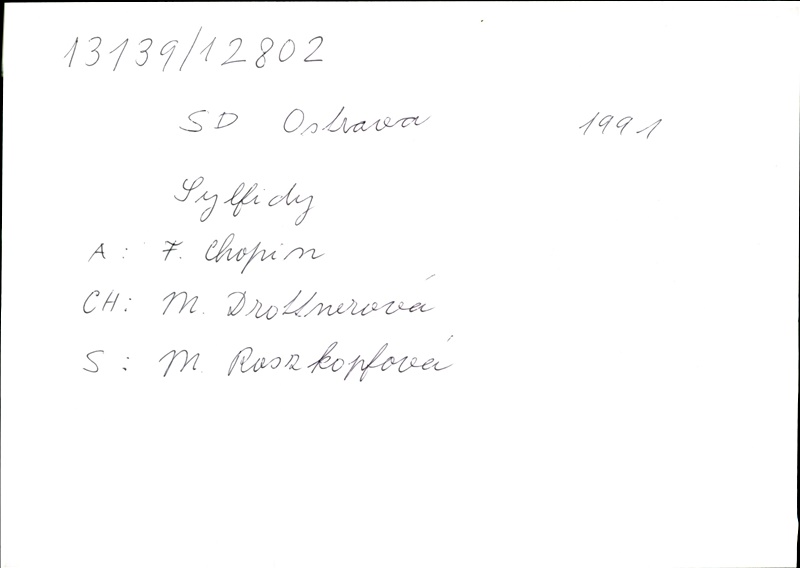 13139/12802
SD Ostrava 1991
Sylfidy
A: F. Chopin
CH: M. Drottnerová
S: M. Roszkopfová